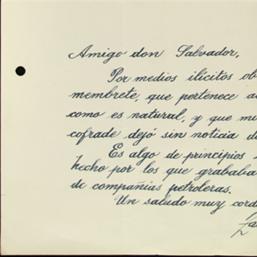 Amigo don Salvador,
Por medios ilícitos ob
membrete, que pertenece a
como es natural, y que mu
cofrade dejó sin noticia d
Es algo de principios
hecho por los que grababa
de compañías petroleras.
Un saludo muy cord